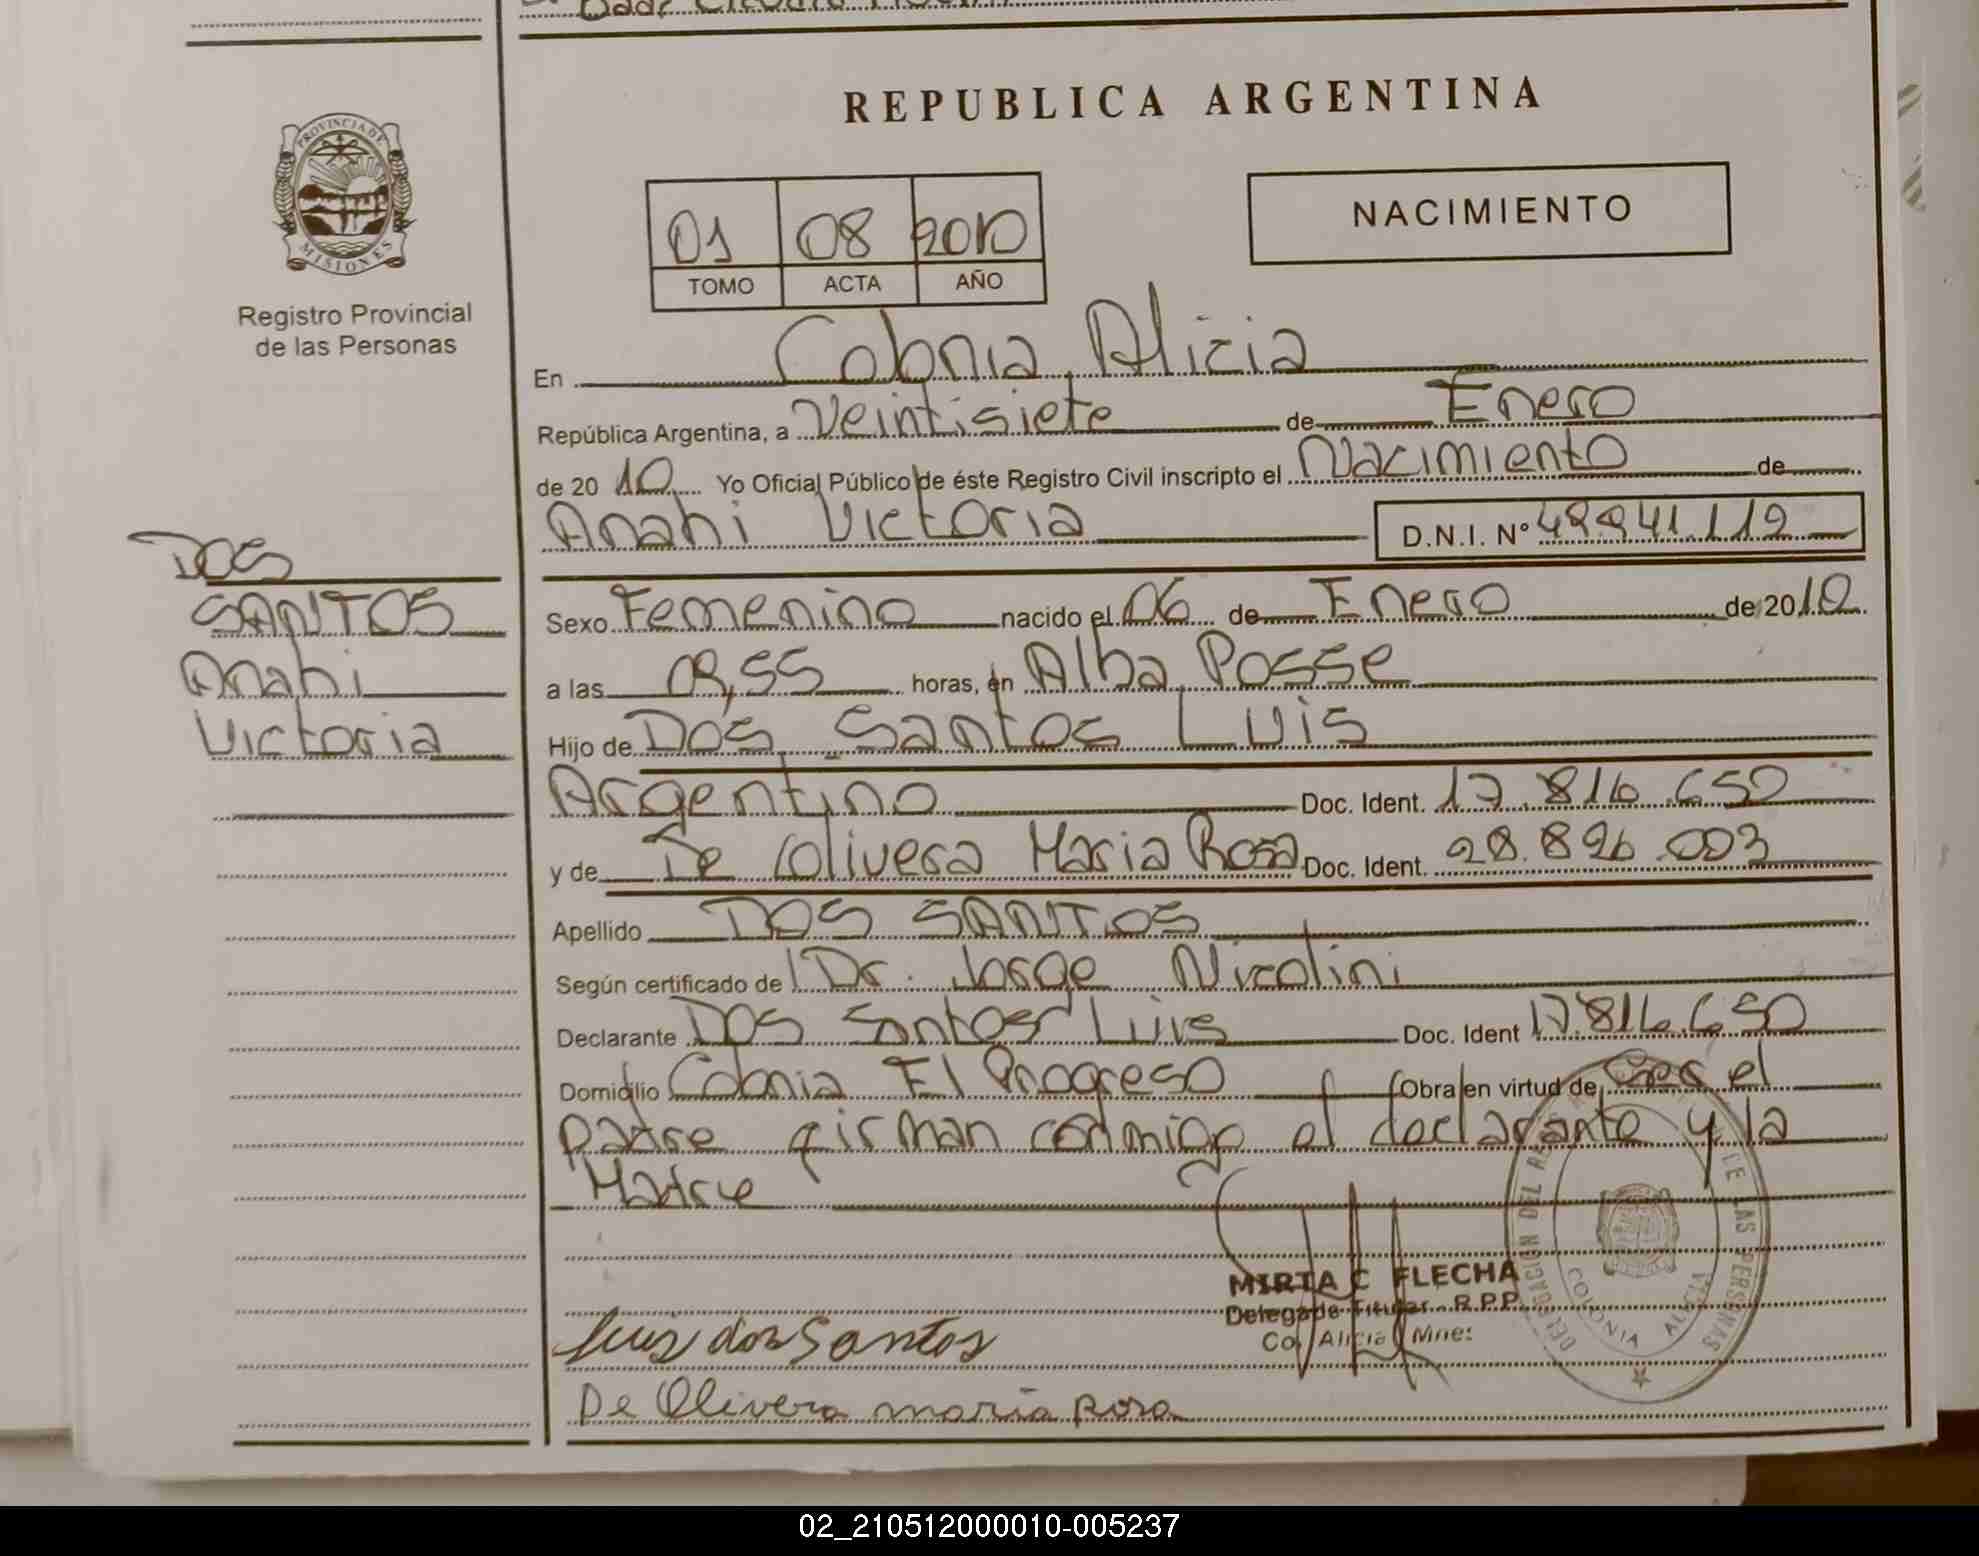 REPUBLICA ARGENTINA
PROVINCIA DE
MISIONES
Registro Provincial
de las Personas
01 08 2010
TOMO ACTA AÑO
NACIMIENTO
En Colonia Alicia
República Argentina, a Veintisiete de Enero
de 20 10 Yo Oficial Público de éste Registro Civil inscripto el Nacimiento de
Anahi Victoria D.N.I. Nº
DOS
SANTOS
Anahi
Victoria
Sexo Femenino nacido el 06 de Enero de 2010
a las horas, en Alba Posse
Hijo de Dos Santos Luis
Argentino Doc. Ident. 17.816.650
y de De Olivera Maria Rosa Doc. Ident. 28.896.003
Apellido DOS SANTOS
Según certificado de Dr. Jorge Nicolini
Declarante Dos Santos Luis Doc. Ident 17.816.650
Domicilio Colonia El Progreso Obra en virtud de Ser el
padre firman conmigo el declarante y la
Madre
MIRTA C FLECHA
Delegada Titular - R.P.P.
Co. Alicia Mnes
DELEGACION DEL DE LAS PERSONAS
COLONIA ALICIA
Luis dos Santos
De Olivera maria rosa
02_210512000010-005237